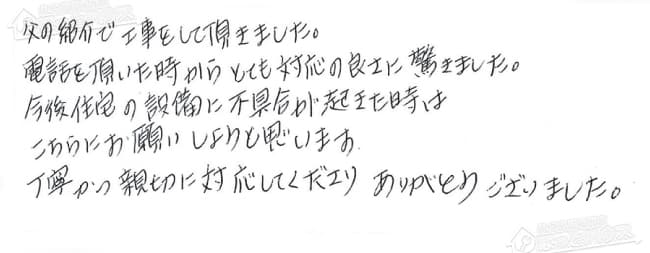 父の紹介で工事をして頂きました。
電話を頂いた時からとても対応の良さに驚きました。
今後住宅の設備に不具合が起きた時は
こちらにお願いしようと思います。
丁寧かつ親切に対応してくださり ありがとうございました。